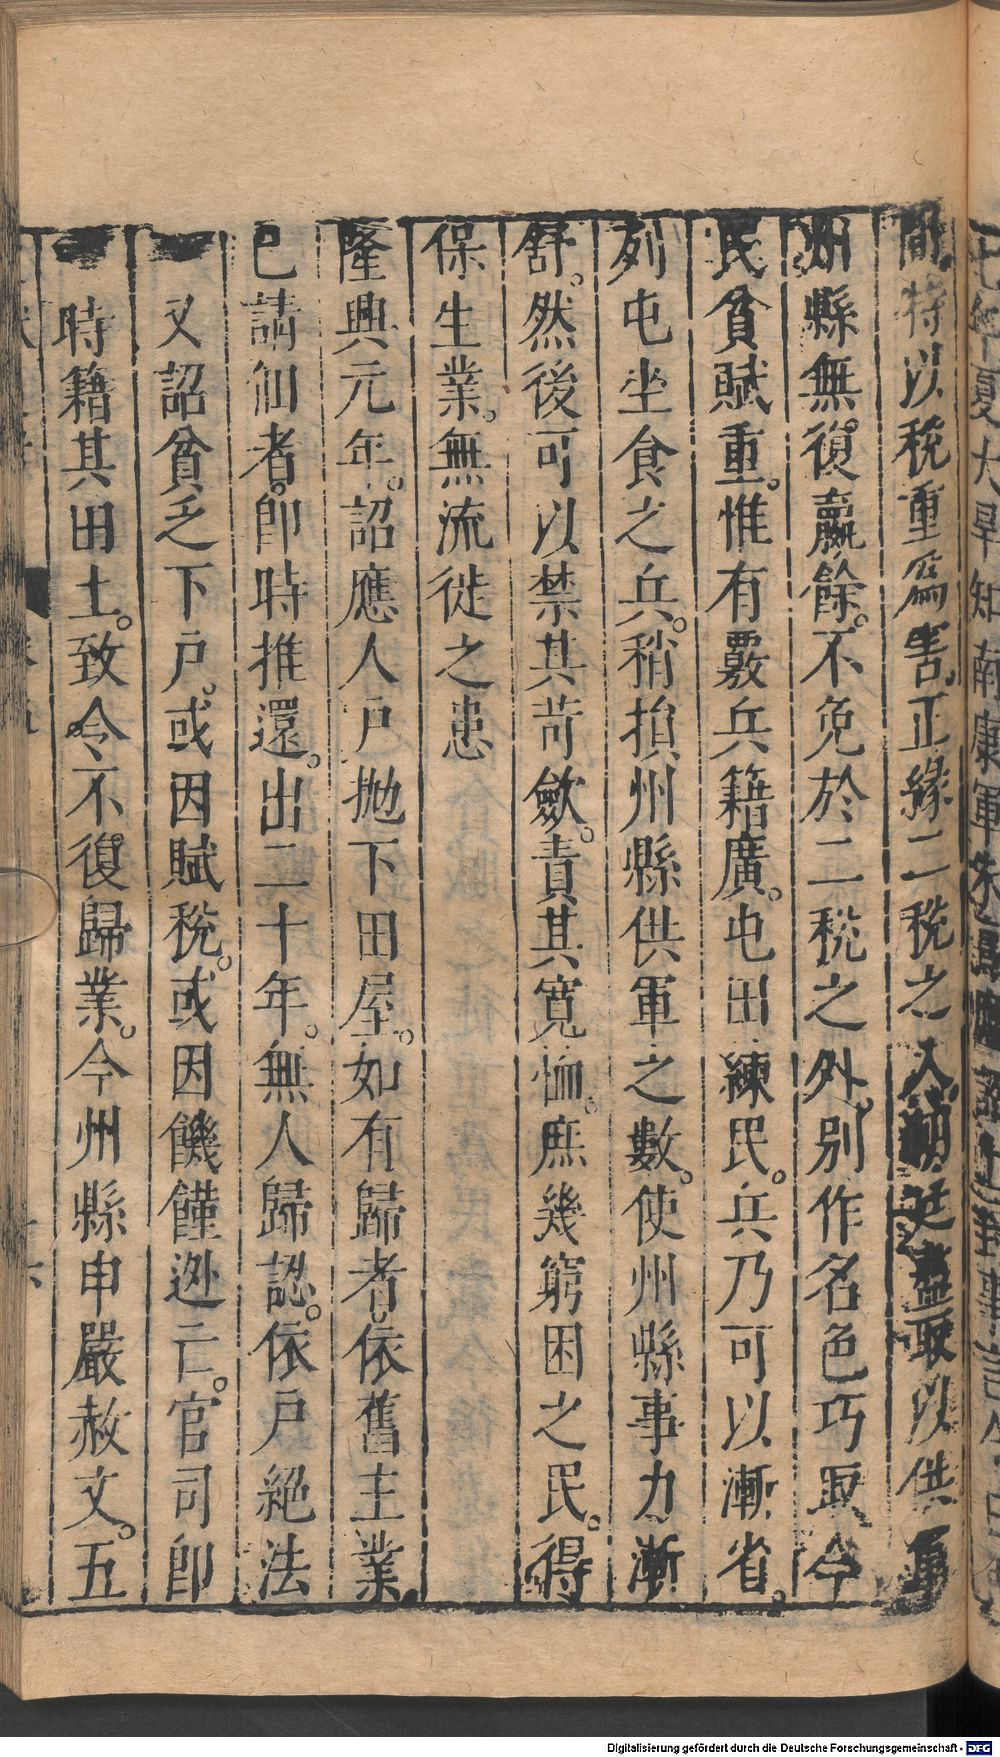 間特以稅重爲害正緣二稅之入朝廷盡取以供軍
州縣無復贏餘。不免於二稅之外。別作名色巧取今
民貧賦重。惟有覈兵籍廣。屯田練民。兵乃可以漸省。
列屯坐食之兵。稍損州縣供軍之數。使州縣事力漸
舒。然後可以禁其苛斂。責其寬恤。庶幾窮困之民。得
保生業。無流徙之患
隆興元年。詔應人戶拋下田屋。如有歸者。依舊主業
已請佃者。卽時推還。出二十年。無人歸認。依戶絕法
又詔貧乏下戶。或因賦稅。或因饑饉逃亡。官司卽
時籍其田土。致令不復歸業。今州縣申嚴赦文。五
Digitalisierung gefördert durch die Deutsche Forschungsgemeinschaft - DFG